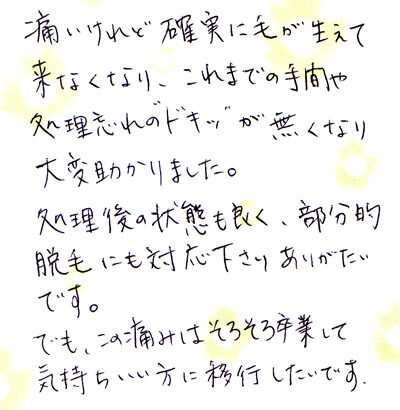 痛いけれど確実に毛が生えて
来なくなり、これまでの手間や
処理忘れの"ドキッ"が無くなり
大変助かりました。
処理後の状態も良く、部分的
脱毛にも対応下さりありがたい
です。
でも、この痛みはそろそろ卒業して
気持ちいい方に移行したいです.